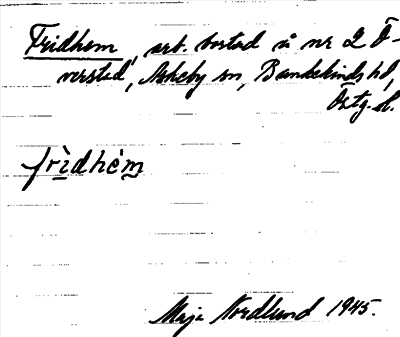 Fridhem, arb. bostad å nr 2 Ö-
versted, Askeby sn, Bankekinds hd,
Östg. l.
frìdhèm
Maja Nordlund 1945.